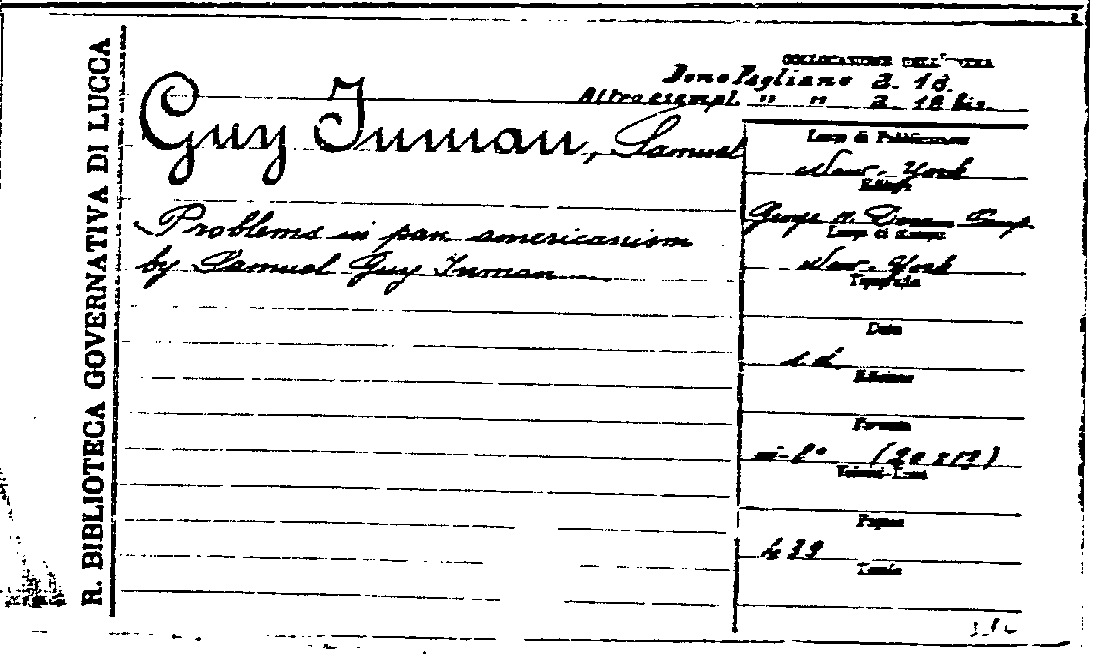 R. BIBLIOTECA GOVERNATIVA DI LUCCA
COLLOCAZIONE DELL'OPERA
Dono Pagliano 2. 18.
Altro esempl. " " 2. 18 bis.
Guy Inman, Samuel
Problems in pan americanism
by Samuel Guy Inman
Luogo di Pubblicazione
New-York
Editore
George H. Doran Comp.
Luogo di Stampa
New-York
Tipografia
Data
s.d.
Edizione
Formato
in-8° (20x13)
Volumi-Tomi
Pagine
439
Tavole